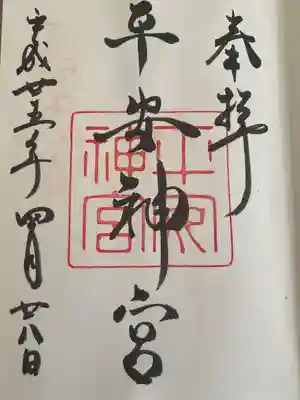 奉拝
平安神宮
平成廿五年四月廿八日
平安神宮